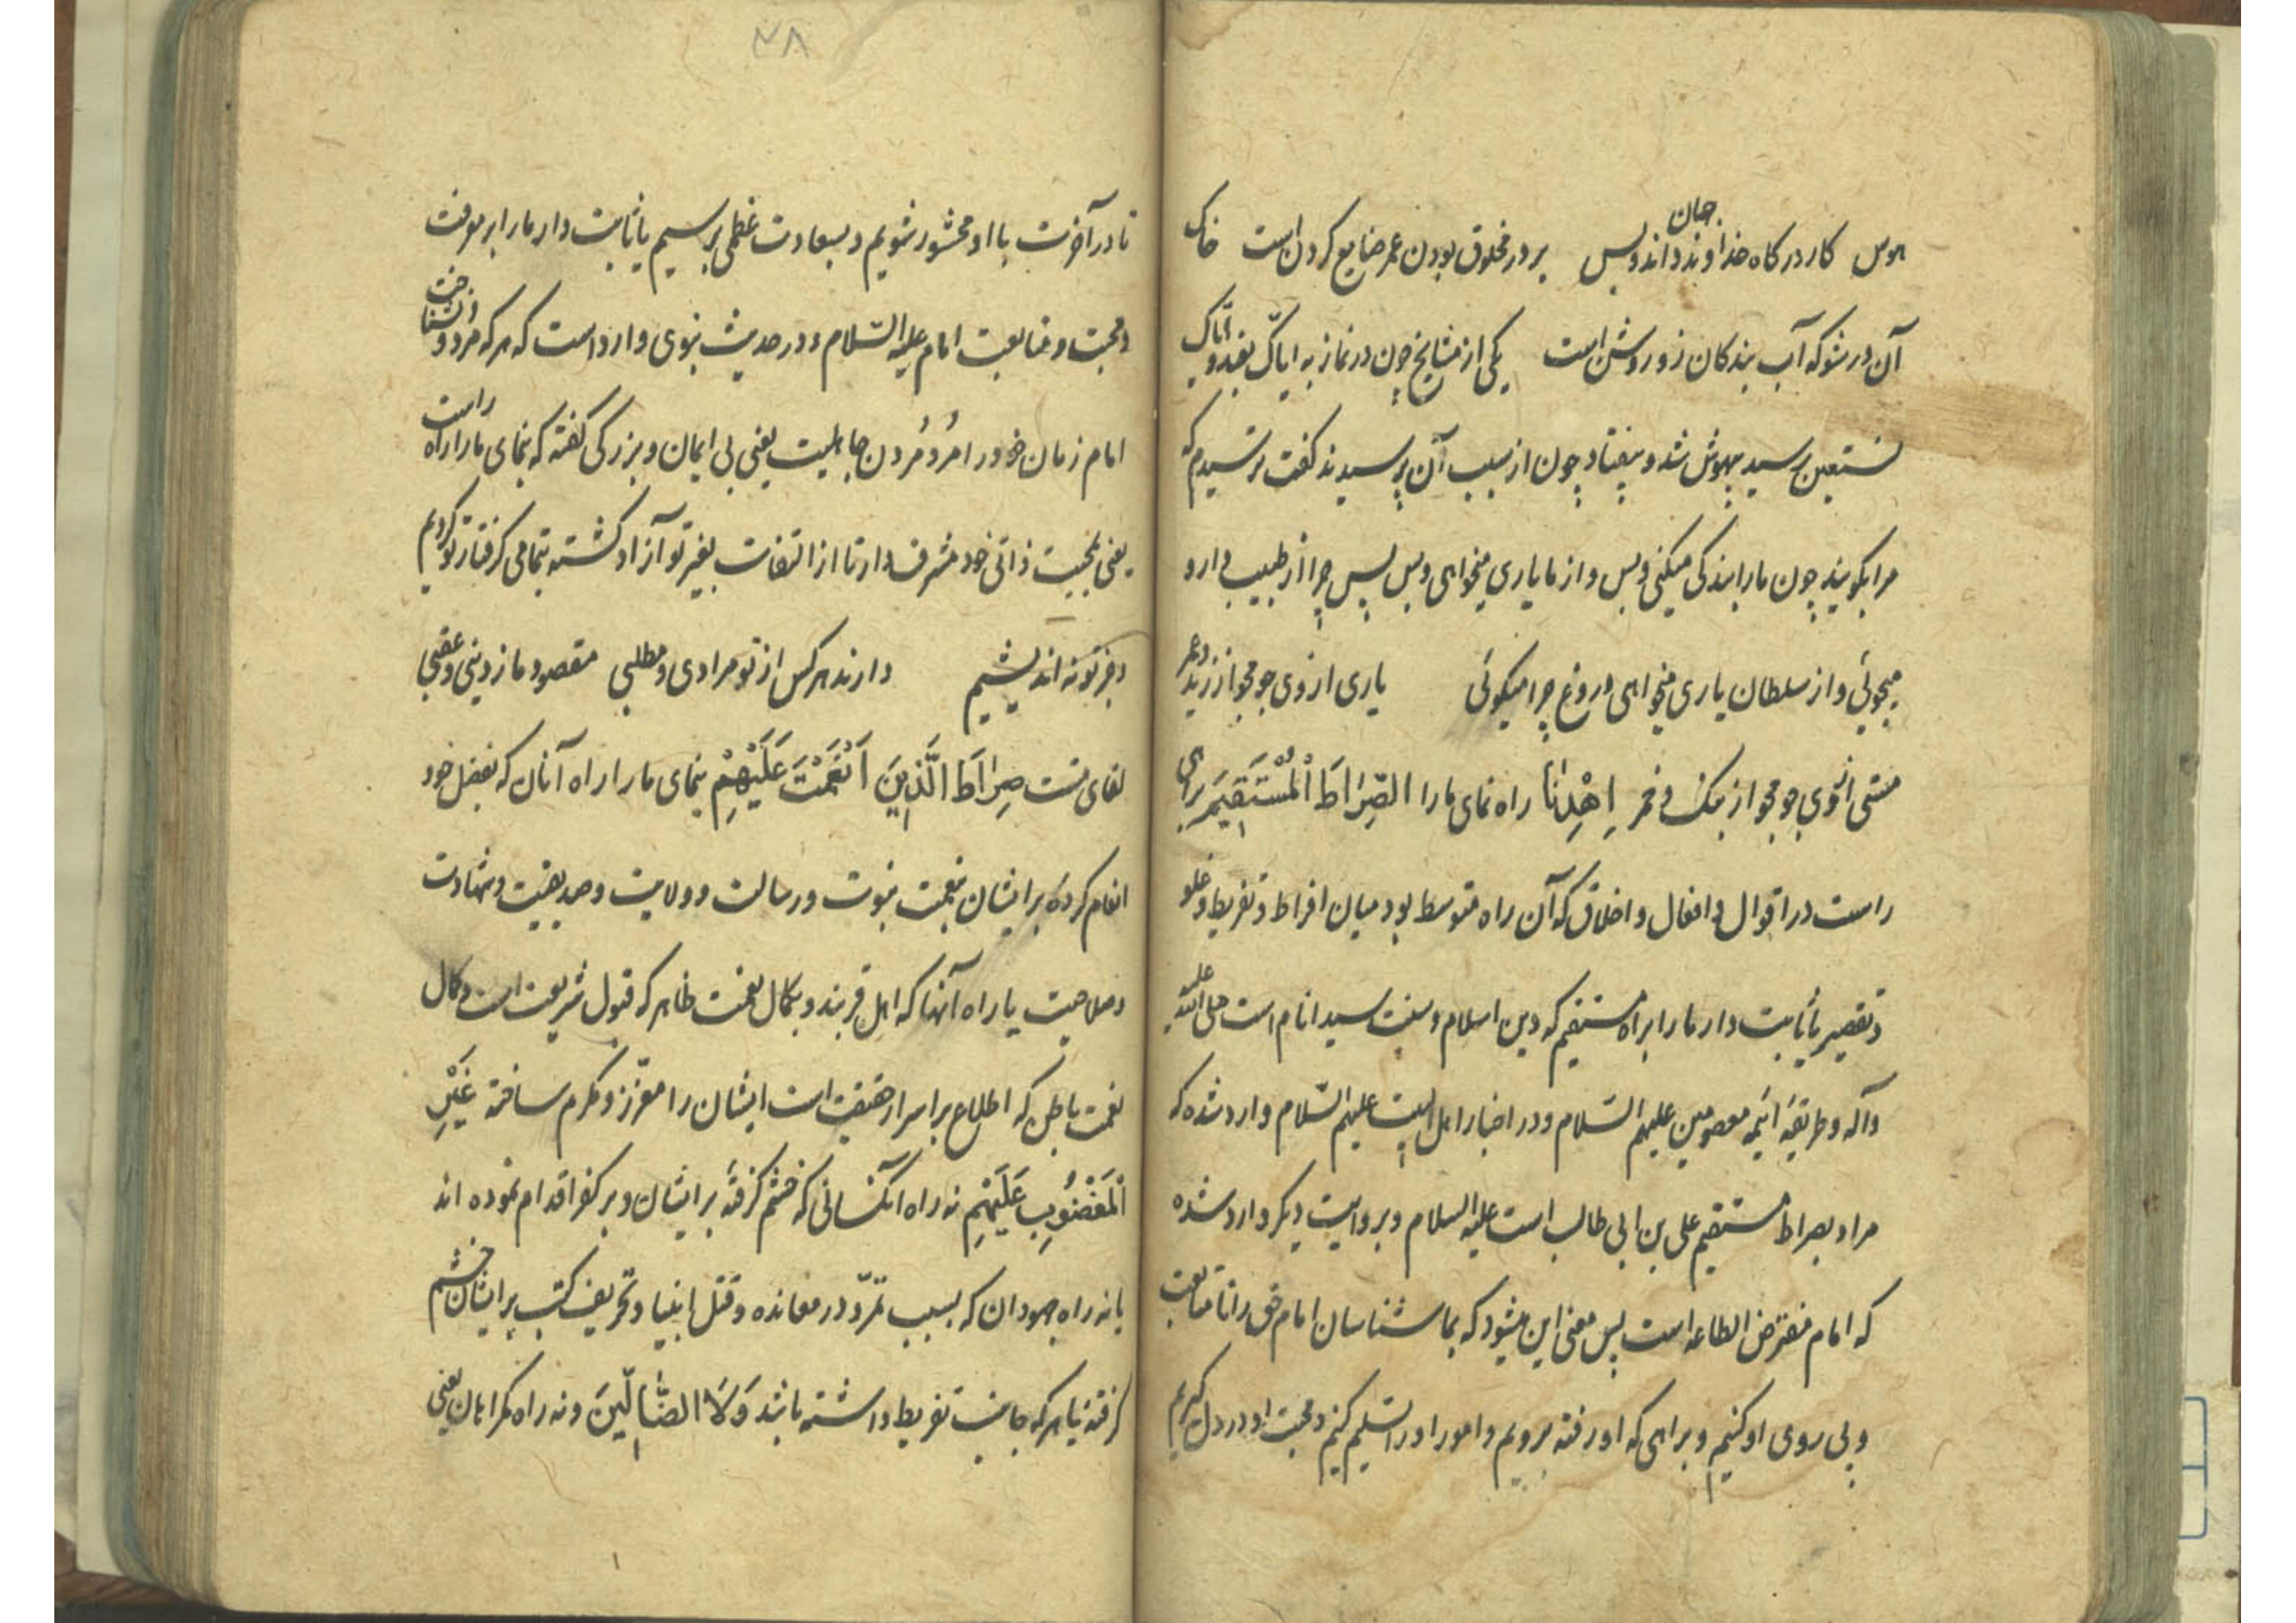 هوس کار درکاه خداوند جهان داند و بس بر در مخلوق بودن عمر ضایع کردن است خاک
آن در شو که آب بندکان زو روشن است یکی از مشایخ چون در نماز به ایاک نعبد و ایاک
نستعین رسید بیهوش شد و بیفتاد چون از سبب آن پرسیدند کفت ترسیدم که
مرا بکویند چون ما را بندکی میکنی و بس و از ما یاری میخواهی و بس پس چرا از طبیب دارو
میجوئی و از سلطان یاری میخواهی دروغ چرا میکوئی یاری از وی جو مجو از زید و عمر
مستی از وی جو مجو از بنک و خمر اِهْدِنَا راه نمای ما را الصِّرَاطَ الْمُسْتَقِیمَ براهی
راست در اقوال و افعال و اخلاق که آن راه متوسط بود میان افراط و تفریط و غلو
و تقصیر یا ثابت دار ما را براه مستقیم که دین اسلام و سنت سید انام است صلی الله علیه
و آله و طریقهٔ ائمه معصومین علیهم السّلام و در اخبار اهل البیت علیهم السّلام وارد شده که
مراد بصراط مستقیم علی بن ابی طالب است علیه السلام و بروایت دیکر وارد شده
که امام مفترض الطاعه است پس معنی این میشود که بما شناسان امام حق را تا متابعت
و پی روی او کنیم و براهی که او رفته برویم و امور او را تسلیم کنیم و محبت او در دل کیریم
۴۸
تا در آخرت با او محشور شویم و بسعادت عظمی برسیم یا ثابت دار ما را بر معرفت
و محبت و متابعت امام علیه السّلام و در حدیث نبوی وارد است که هر که مرد و نشناخت
امام زمان خود را مُرد مُردن جاهلیت یعنی بی ایمان و بزرکی کفته که بنمای ما را راه راست
یعنی بمحبت ذاتی خود مشرف دار تا از التفات بغیر تو آزاد کشته بتمامی کرفتار تو کردیم
و بجز تو نه اندیشیم دارند هر کس از تو مرادی و مطلبی مقصود ما ز دینی و عقبی
لقای تست صِرَاطَ الَّذِینَ اَنْعَمْتَ عَلَیْهِمْ بنمای ما را راه آنان که بفضل خود
انعام کردهٔ بر ایشان بنعمت نبوت و رسالت و ولایت و صدیقیت و شهادت
و صلاحیت یا راه آنها که اهل قربند و بکمال نعمت ظاهر که قبول شریعت است و کمال
نعمت باطن که اطلاع بر اسرار حقیقت است ایشان را معزّز و مکرم ساختهٔ غَیْرِ
الْمَغْضُوبِ عَلَیْهِمْ نه راه آنکسانی که خشم کرفتهٔ بر ایشان و بر کفر اقدام نموده اند
یا نه راه جهودان که بسبب تمرّد در معانده و قتل انبیا و تحریف کتب بر ایشان خشم
کرفتهٔ یا هر که جانب تفریط داشته باشد وَلَا الضَّالِّینَ و نه راه کمراهان یعنی